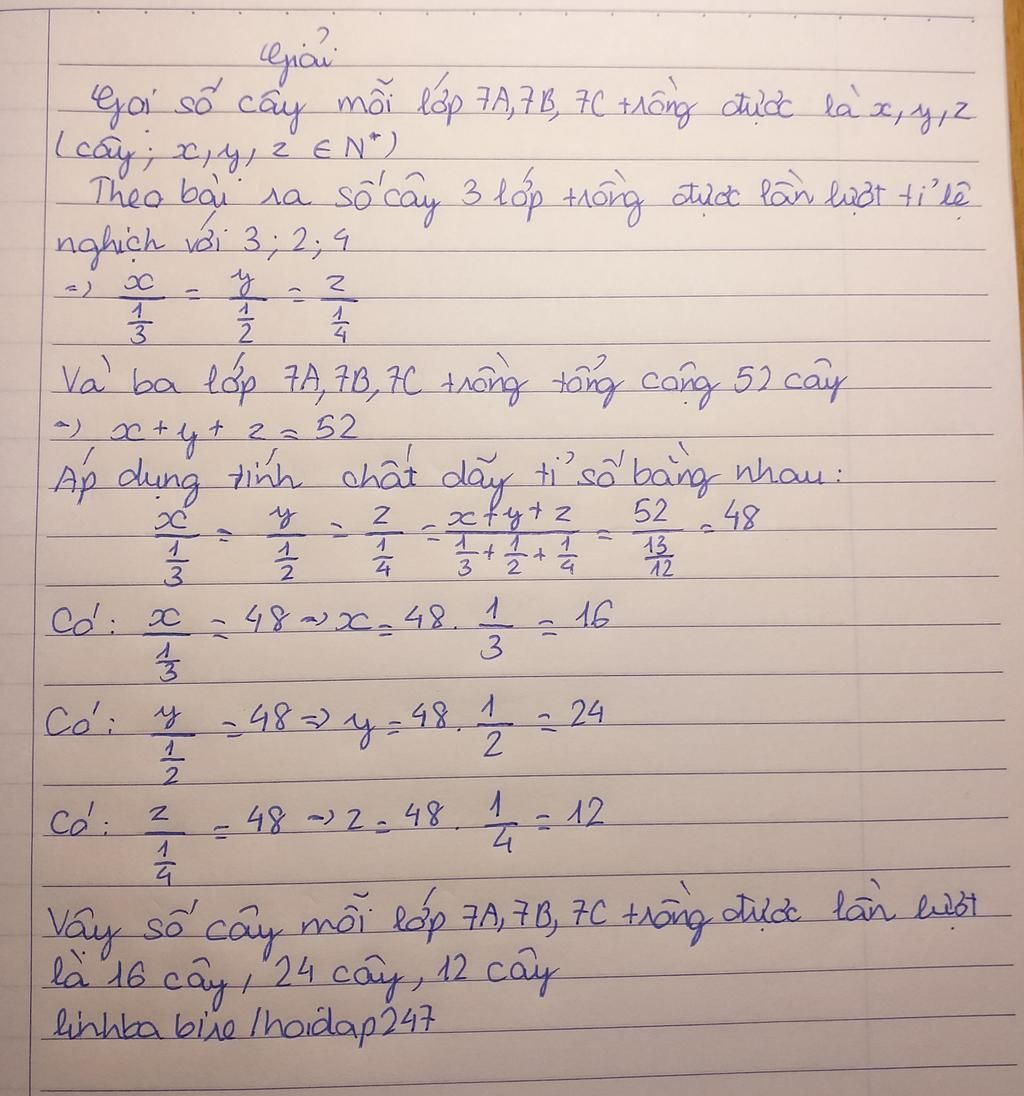 Giải
Gọi số cây mỗi lớp 7A, 7B, 7C trồng được là x, y, z
(cây; x, y, z ∈ N*)
Theo bài ra số cây 3 lớp trồng được lần lượt tỉ lệ
nghịch với 3; 2; 4
=> x/(1/3) = y/(1/2) = z/(1/4)
Và ba lớp 7A, 7B, 7C trồng tổng cộng 52 cây
=> x + y + z = 52
Áp dụng tính chất dãy tỉ số bằng nhau:
x/(1/3) = y/(1/2) = z/(1/4) = (x+y+z)/(1/3 + 1/2 + 1/4) = 52/(13/12) = 48
Có: x/(1/3) = 48 => x = 48 . 1/3 = 16
Có: y/(1/2) = 48 => y = 48 . 1/2 = 24
Có: z/(1/4) = 48 => z = 48 . 1/4 = 12
Vậy số cây mỗi lớp 7A, 7B, 7C trồng được lần lượt
là 16 cây, 24 cây, 12 cây
/hoidap247